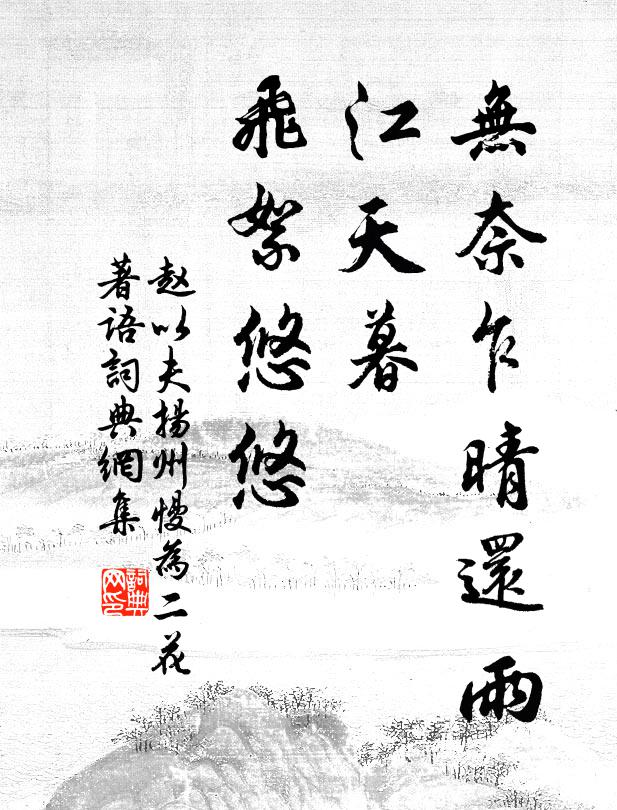 無奈乍晴還雨
江天暮
飛絮悠悠
赵以夫揚州慢為二花
著語詞典網集
詞典
网印